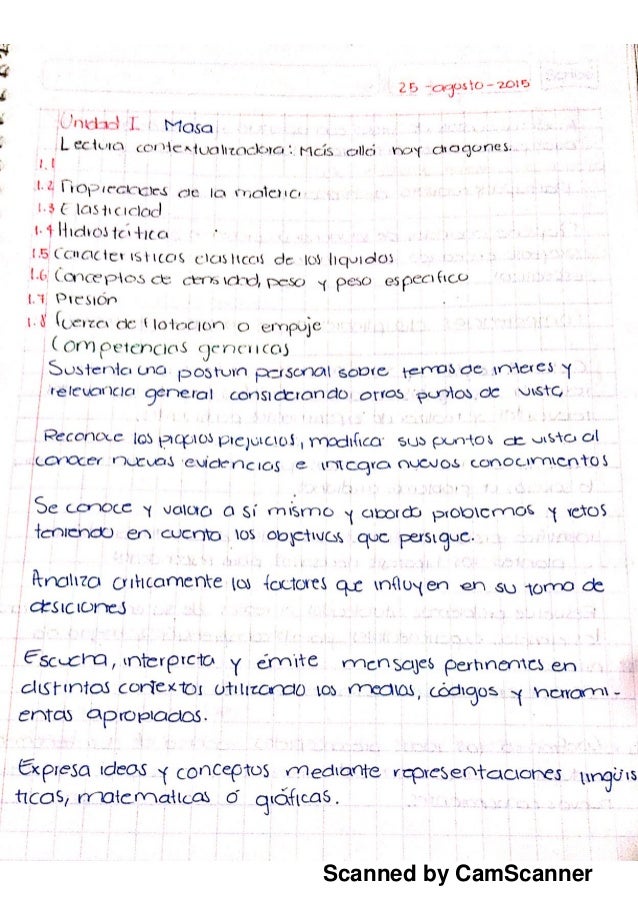 25-agosto-2015
Unidad I Masa
Lectura contextualizadora: Más allá hay dragones.
1.1
1.2 Propiedades de la materia
1.3 Elasticidad
1.4 Hidrostática
1.5 Características elasticas de los liquidos
1.6 Conceptos de densidad, peso y peso especifico
1.7 Presión
1.8 fuerza de flotacion o empuje
Competencias genericas
Sustenta una postura personal sobre temas de interes y
relevancia general considerando otros puntos de vista
Reconoce los propios prejuicios, modifica sus puntos de vista al
conocer nuevas evidencias e integra nuevos conocimientos
Se conoce y valora a sí mismo y aborda problemas y retos
teniendo en cuenta los objetivos que persigue.
Analiza criticamente los factores que influyen en su toma de
desiciones
Escucha, interpreta y émite mensajes pertinentes en
distintos contextos utilizando los medios, códigos y herrami-
entas apropiados.
Expresa ideas y conceptos mediante representaciones lingüis
ticas, matematicas ó gráficas.
Scanned by CamScanner